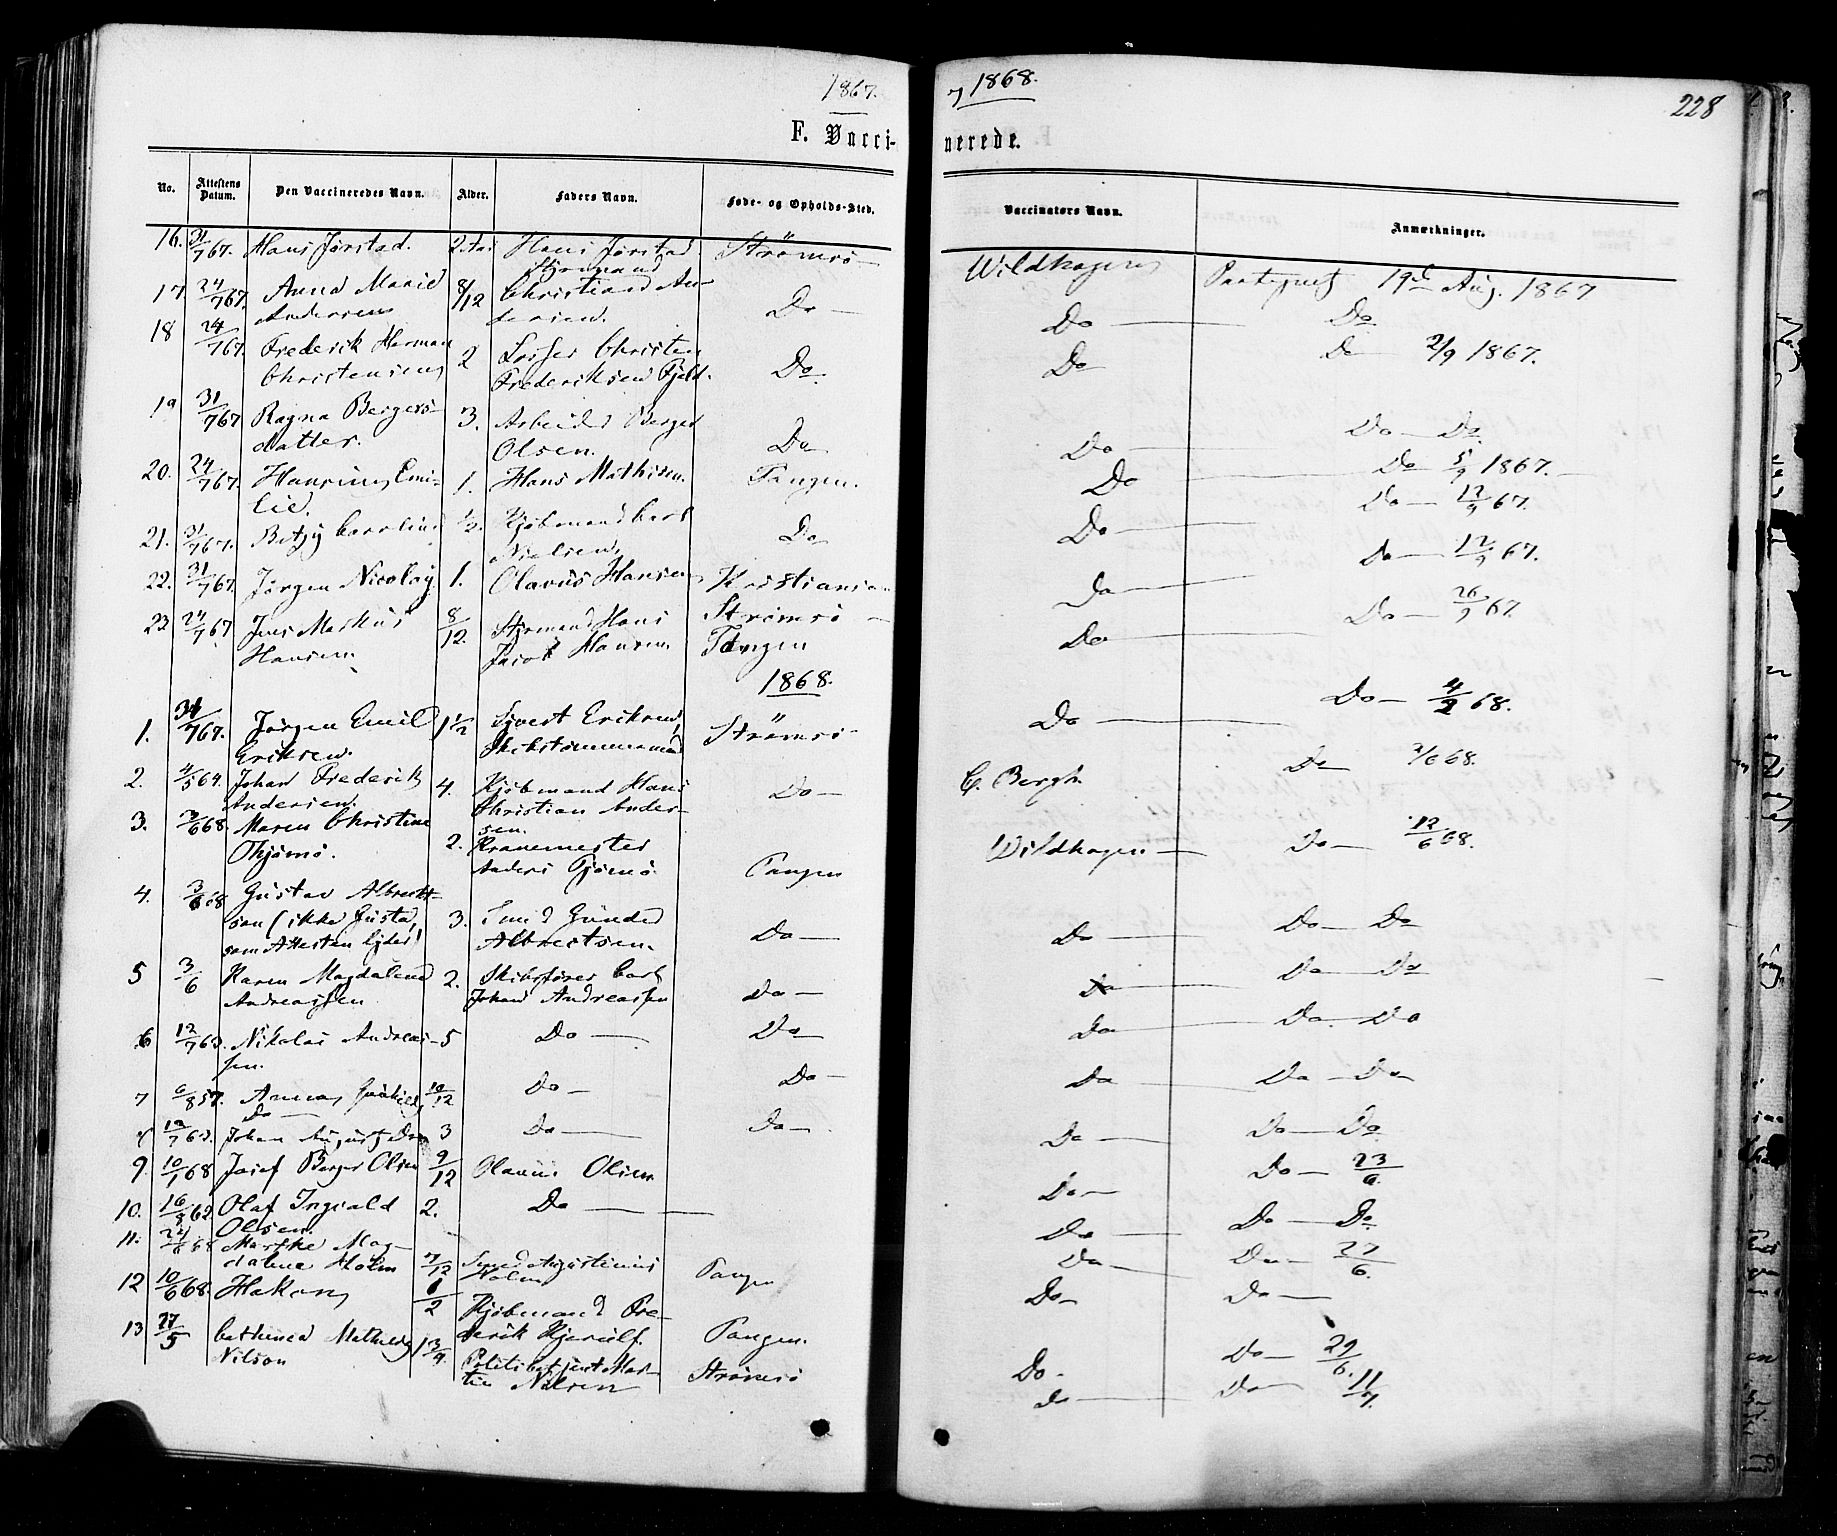 1867. 7 1868.
228
F. Vaccinerede.
No. Attestens Datum. Den Vaccineredes Navn. Alder. Faders Navn. Føde- og Opholds-Sted. Vaccinators Navn. Anmærkninger.
16. 31/7 67. Hans Jørstad. 2. Hans Jørstad Strömsö Wildhagen 19de Aug. 1867
Styrmand
17 24/7 67. Anna Marie 8/12 Christian An- Do Do Do
Andersen dersen.
18 24/7 67. Frederik Herman 2 Christen Do. Do Do 2/9 1867.
Christensen Frederiksen Fjeld.
19 31/7 67 Ragna Bergers- 3. Arbeider Berger Do Do Do Do
datter. Olsen.
20. 24/7 67. Hansine Emi- 1. Hans Mathisen. Tangen. Do Do 5/9 1867.
lie.
21. 31/7 67. Betzy Caroline 1/2. Kjøbmand Carl Do Do Do 12/9 67.
Nielsen.
22. 31/7 67. Jørgen Nicolay 1. Olavus Hansen Kristiania Do Do 12/9 67.
23 24/7 67 Jens Markus 8/12. Styrmand Hans Strømsø Do Do 26/9 67.
Hansen. Jacob Hansen Tangen
1868.
1. 31/7 67. Jørgen Emil 1 1/2 Sjvert Eriksen, Strömsö Do Do 4/2 68.
Eriksen. Skibstømmermand
2. 4/5 64. Johan Frederik 4. Kjøbmand Hans Do C. Bergh. Do 2/6 68.
Andersen. Christian Ander-
sen.
3. 3/6 68. Maren Christine 2. Kranemester Tangen Wildhagen Do 12/6 68.
Thjømø. Anders Tjømø.
4. 3/6 68 Gustav Albrekt- 3. Smed Gunder Do Do Do Do
sen (ikke Gusta, Albrektsen.
som Attesten lyder)
5 3/6 Karen Magdalena 2. Skibsfører Carl Do Do Do Do
Andreassen Johan Andreassen
6 12/7 63. Nikolai Andreas- 5 Do Do Do Do Do
sen.
7 6/8 57. Anna 10/12 Do Do Do Do Do
Do
8 12/7 63. Johan August Do 3 Do Do Do Do Do
9. 10/1 68 Josef Berger Olsen 9/12 Olavus Olsen Do Do 23/6.
10. 16/8 62 Olaf Ingvald 2. Do Do Do Do
Olsen.
11. 24/6 68 Marthe Mag- 7/12 Smed Augustinus Do Do 27/6.
dalene Holm Holm
12 10/6 68. Hakon 1/2 Kjøbmand Fre- Tangen Do Do
derik Hjerulf. Tangen.
13 27/5 Cathinca Mathilde 1 3/4. Politibetjent Mar- Strømsø Do Do 29/6.
Nilson tin Nilsen Do Do 11/7.